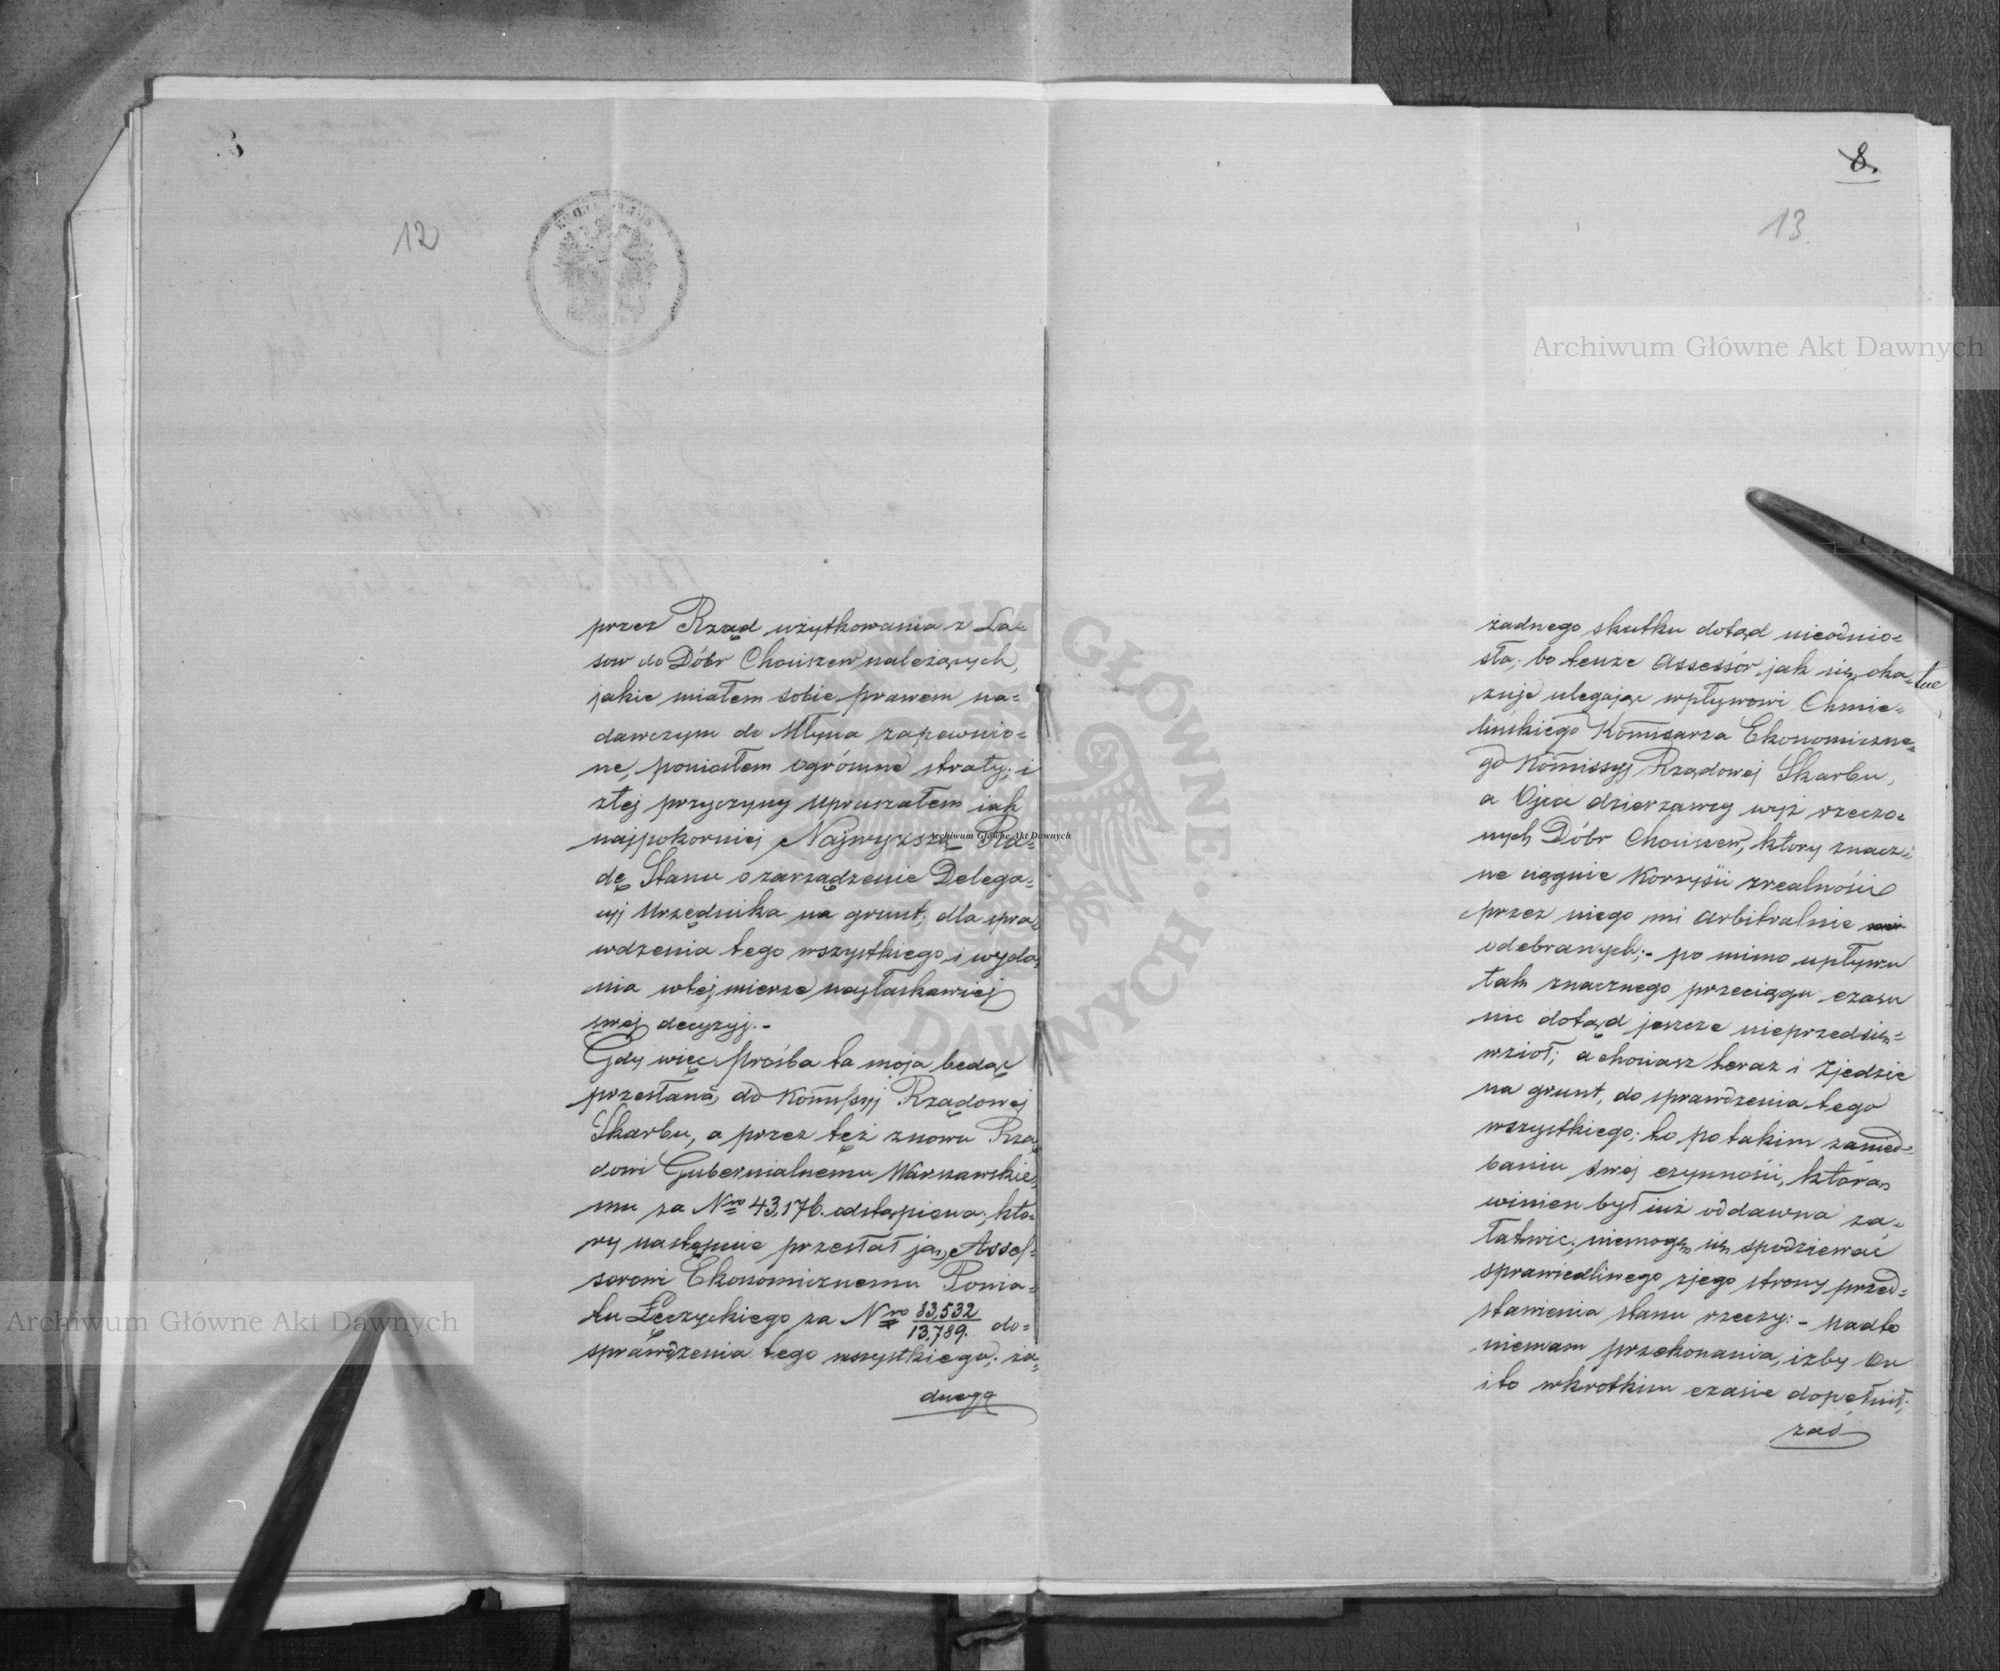 12
przez Rząd użytkowania z La=
sow do Dóbr Chociszew należących,
jakie miałem sobie prawem na=
dawczym do Młyna zapewnio=
ne, poniosłem ogromne straty; i
ztej przyczyny upraszałem jak
najpokorniej Najwyższą Ra=
dę Stanu o zarządzenie Delega=
cyj Urzędnika na grunt; dla spra=
wdzenia tego wszystkiego i wyda=
nia wtej mierze najłaskawiej
swej decyzyj.-
Gdy więc Prośba ta moja będąc
przesłaną do Kommissyj Rządowej
Skarbu, a przez też znowu Rzą=
dowi Gubernialnemu Warszawskie=
mu za Nro 43,176. odstąpiona; któ=
ry następnie przesłał ją Assef=
sorowi Ekonomicznemu Powia=
tu Łęczyckiego za Nro 83,532/13,789. do=
sprawdzenia tego wszystkiego; ża=
dnego
8.
13.
żadnego skutku dotąd nieodnio=
sła; bo tenże Assessór jak się oka=
tue
zuje ulegając wpływowi Chmie=
linskiego Kommisarza Ekonomiczne=
go Kommissyj Rządowej Skarbu,
a Ojca dzierzawcy wyż rzeczo=
nych Dóbr Chociszew, ktory znacz=
ne ciągnie Korzyści zrealności
przez niego mi arbitralnie
odebranych;- po mimo upływu
tak znacznego przeciągu czasu
nic dotąd jeszcze nieprzedsię=
wziął; a chociasz teraz i Zjedzie
na grunt, do sprawdzenia tego
wszystkiego; to po takim zanied=
baniu swej czynności, którą
winien był już oddawna za=
łatwic; niemogę się spodziewać
sprawiedliwego zjego strony przed=
stawienia stanu rzeczy:- nadto
niemam przekonania, izby On
i to wkrotkim czasie dopełnił;
zaś
Archiwum Główne Akt Dawnych
Archiwum Główne Akt Dawnych
Archiwum Główne Akt Dawnych